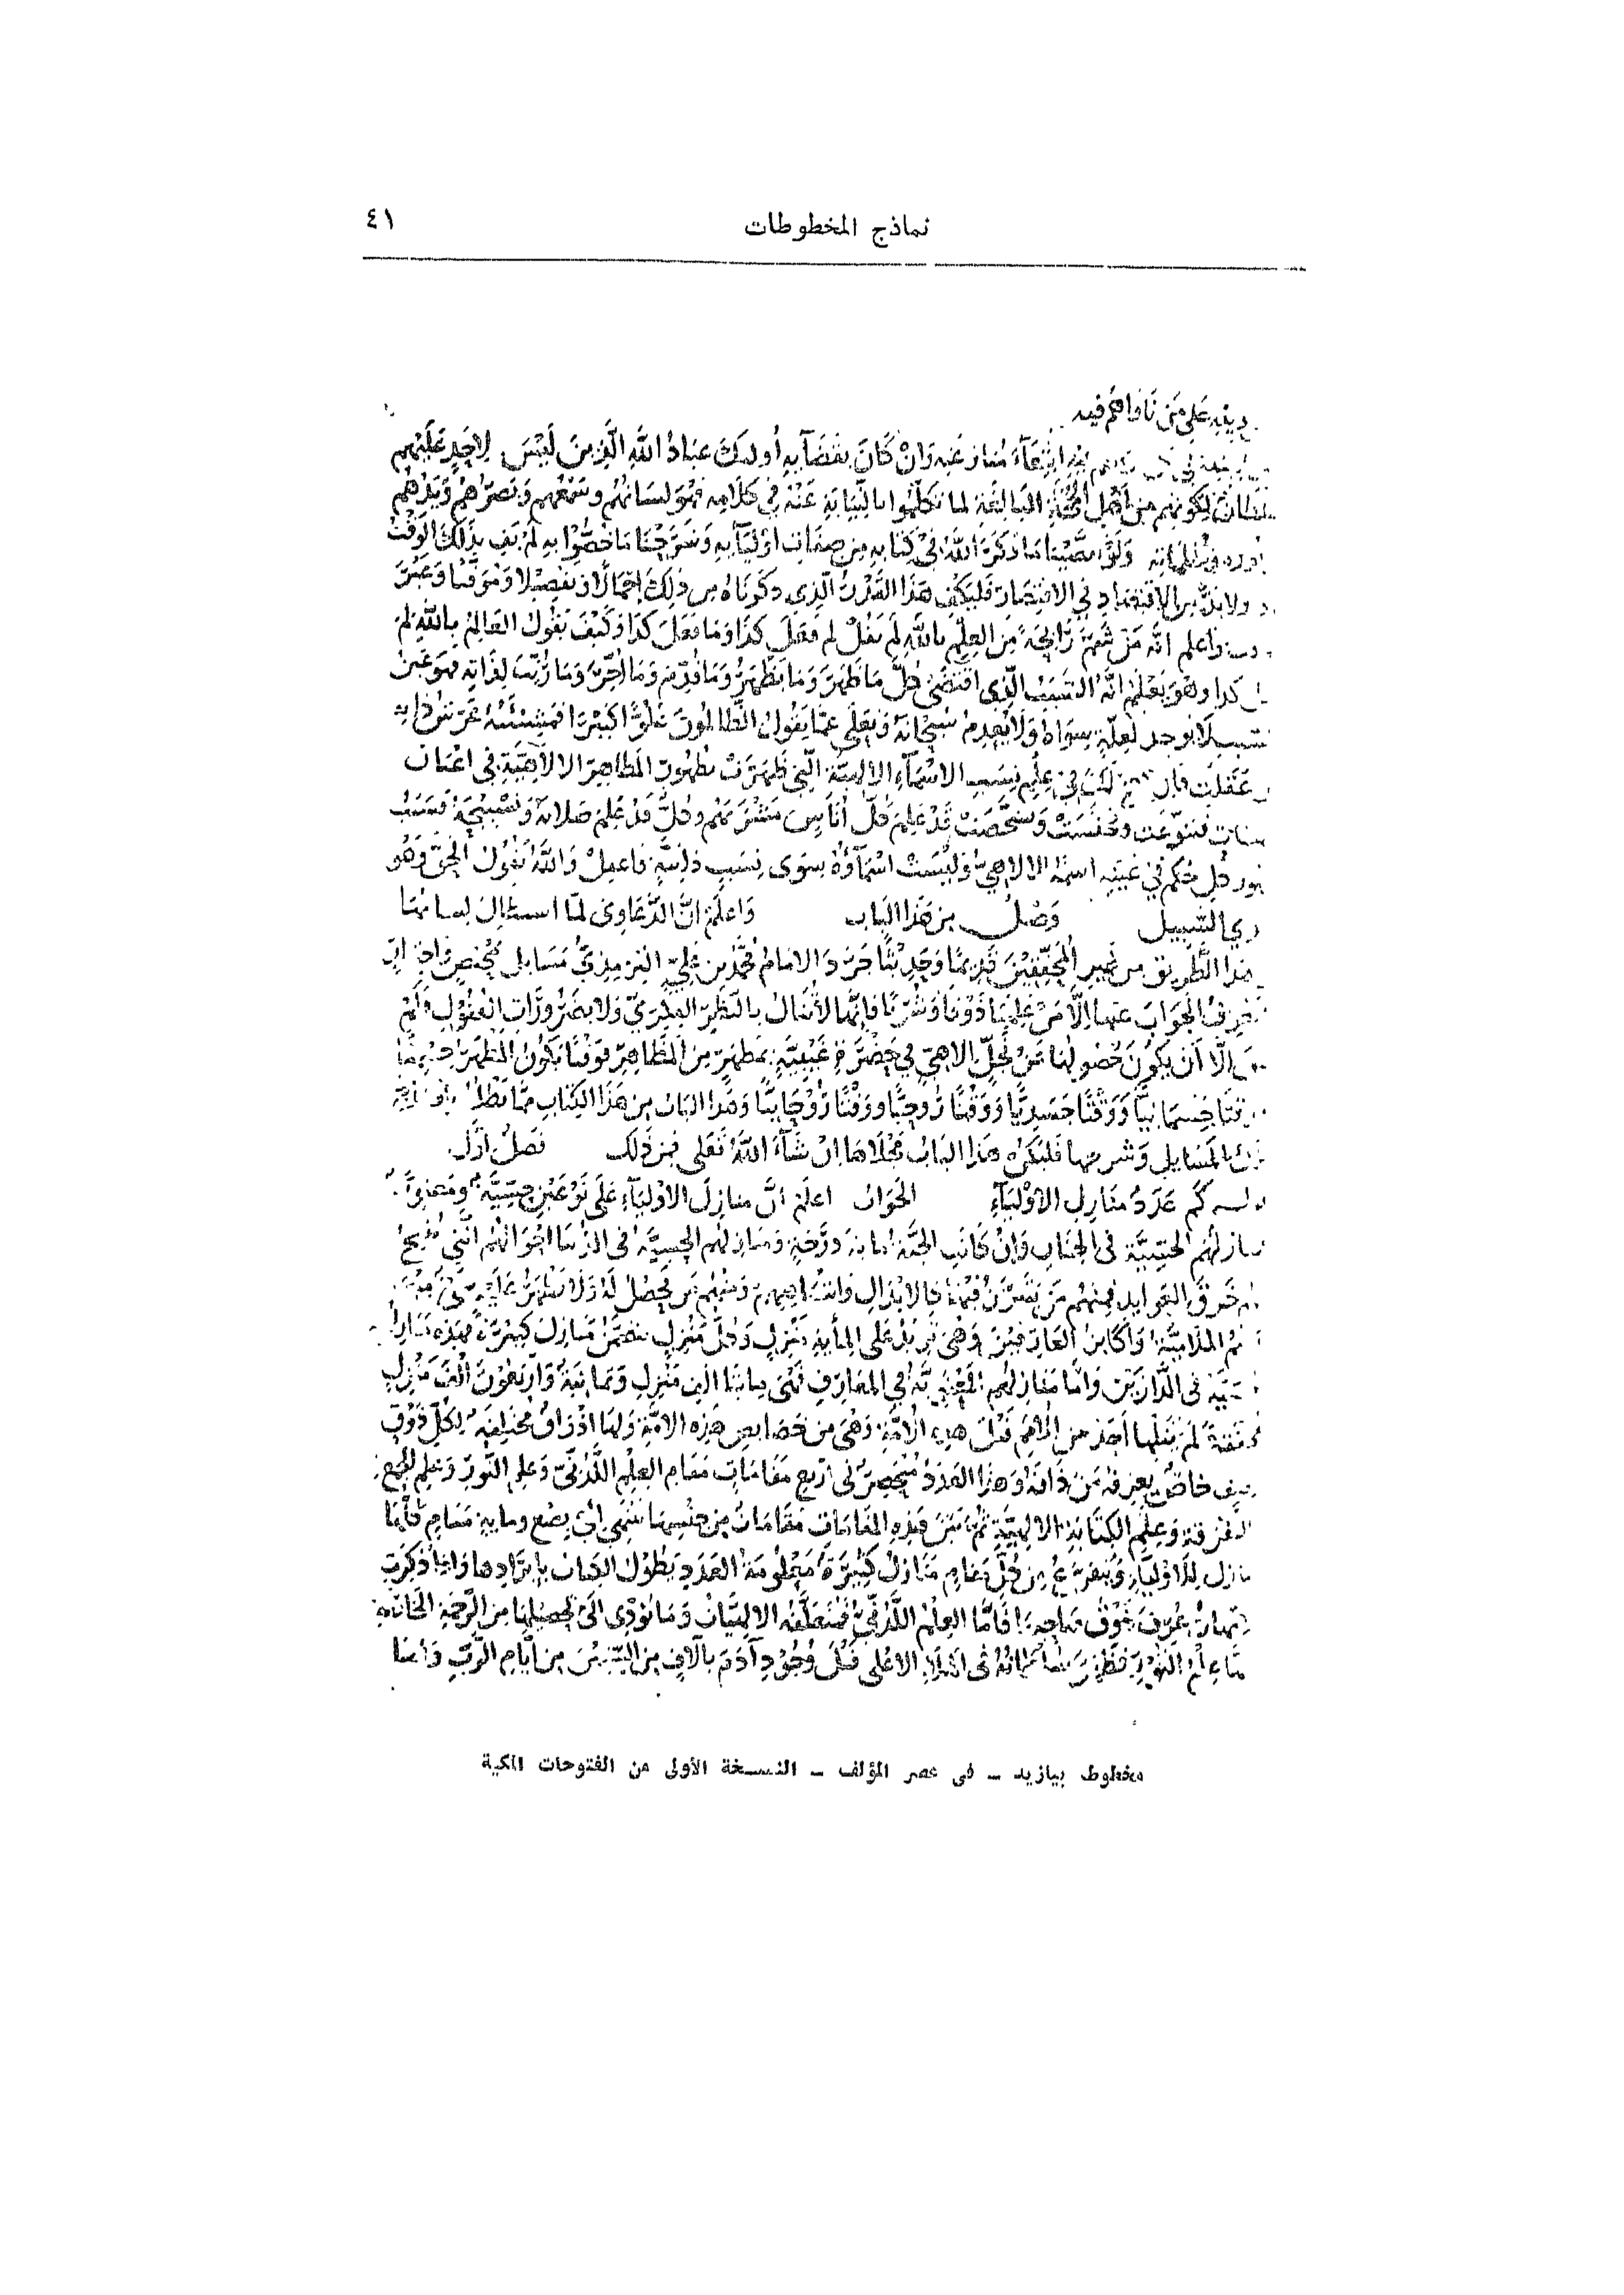 نماذج المخطوطات
٤١
دينه على من ناواهم فيه
ابتغاء منازعيه وان كان بقضآيه أوليك عباد الله الذين ليس لاحد عليهم
سلطان لكونهم من أهل الحجة البالغة لما تكلموا بالنيابة عنه في كلامه فهو لسانهم وسمعهم وبصرهم ويدهم
ولو تقصينا ما ذكر الله في كتابه من صفات اوليآيه وشرحنا ما خصوا به لم يف بذلك الوقت
ولا بد من الاقتصاد في الاقتصار فليكف هذا القدر الذي ذكرناه من ذلك اجمالا وتفصيلا وموقتا وغير
واعلم انه من شم رايحة من العلم بالله لم يقل لم فعل كذا وما فعل كذا وكيف يقول العالم بالله لم
كذا وهو يعلم انه السبب الذي اقتضى كل ما ظهر وما يظهر وما قدم وما اخر وما رتب لذاته فهو عين
السبب فلا يوجد لعلة سواه ولا يعدم سبحانه وتعلى عما يقول الظالمون علوا كبيرا فمشيئته عرش ذاته
فان لك في علم نسب الاسمآء الالهية التي ظهرت بظهور المظاهر الالاهية في اعيان
فتنوعت وتجنست وتشخصت قد علم كل أناس مشربهم وكل قد علم صلاته وتسبيحه فسبب
ظهور كل حكم في عينه اسمه الالاهي وليست اسمآؤه سوى نسب ذاتية فاعمل والله يقول الحق وهو
يهدي السبيل وصل من هذا الباب واعلم ان الدعاوى لما استطال لسانها
في هذا الطريق من غير المحققين قديما وحديثا جرد الامام محمد بن علي الترمذي مسايل تمحيص واختبار
يعرف الجواب عنها الا من علمها ذوقا وشربا فإنها لا تنال بالنظر الفكري ولا بضرورات العقول فلم
يبق إلا أن يكون حصولها عن تجل الاهي في حضرة غيبية بمظهر من المظاهر فوقتا يكون المظهر جسميا
ووقتا جسمانيا ووقتا جسديا ووقتا روحيا ووقتا روحانيا وهذا الباب من هذا الكتاب مما يطلب ايضاح
تلك المسايل وشرحها فليكن هذا الباب مجلاها ان شآء الله تعلى فمن ذلك فصل اول
كم عدد منازل الاوليآء الجواب اعلم ان منازل الاوليآء على نوعين حسية ومعنوية
فمنازلهم الحسية في الجنان وان كانت الجنة ماية درجة ومنازلهم الحسية في الدنيا احوالهم التي تنتج
لهم خرق العوايد فمنهم من يتبرز فيها كالابدال واشباههم ومنهم من تحصل له ولا تظهر عليه
وهم الملامية واكابر العارفين وهي تزيد على ماية منزل وكل منزل يتضمن منازل كثيرة فهذه منازلهم
الحسية في الدارين واما منازلهم المعنوية في المعارف فهي مايتا الف منزل وثمانية واربعون الف منزل
محققة لم ينلها احد من الأمم قبل هذه الأمة وهي من خصايص هذه الامة ولها اذواق مختلفة لكل ذوق
وصف خاص يعرفه من ذاقه وهذا العدد منحصر في اربع مقامات مقام العلم اللدني وعلم النور وعلم الجمع
والتفرقة وعلم الكتابة الالهية ثم بين هذه المقامات مقامات من جنسها تنتهي إلى بضع وماية مقام كلها
منازل للأوليآء ويتفرع من كل مقام منازل كثيرة معلومة العدد يطول الكتاب بإيرادها واذا ذكرت
الامهات عرف ذوق صاحبها فاما العلم اللدني فمتعلقه الالهيات وما يؤدي الى تحصيلها من الرحمة الخاصة
واما علم النور فظهر سلطانه في الملإ الاعلى قبل وجود آدم بآلاف من السنين من ايام الرب واما
مخطوط بيازيد – في عصر المؤلف – النسخة الأولى من الفتوحات المكية